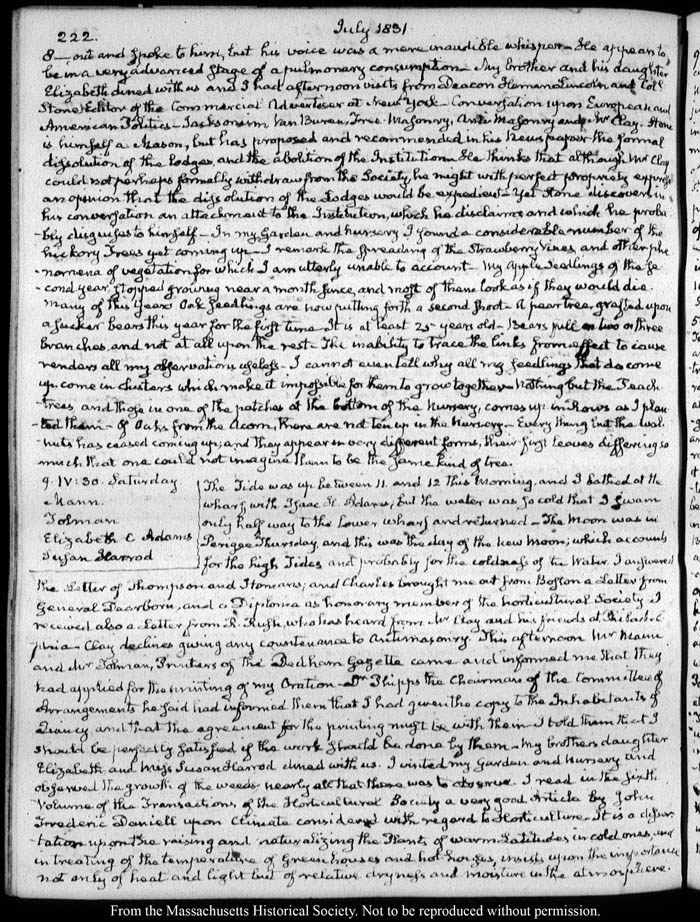 222.
July 1831
8— out and spoke to him, but his voice was a mere inaudible whisper— He appears to
be in a very advanced stage of a pulmonary consumption— My brother and his daughter
Elizabeth dined with us and I had afternoon visits from Deacon Heman Lincoln, and Col.l
Stone, Editor of the Commercial Advertiser at New York— Conversation upon European and
American Politics— Jacksonism Van Buren, Free-Masonry, Anti-Masonry and Mr Clay. Stone
is himself a Mason, but has proposed and recommended in his Newspaper the formal
dissolution of the Lodges, and the abolition of the Institution. He thinks that although Mr Clay
could not perhaps formally withdraw from the Society, he might with perfect propriety express
an opinion that the dissolution of the Lodges would be expedient— Yet Stone discovers in
his conversation an attachment to the Institution, which he disclaims and which he proba-
-bly disguises to himself— In my Garden and nursery I found a considerable number of the
hickory Trees yet coming up— I remark the spreading of the Strawberry Vines, and other phe-
-nomena of vegetation for which I am utterly unable to account— My Apple Seedlings of the se-
-cond year, stopped growing near a month since, and most of them look as if they would die.
Many of this years Oak Seedlings are now putting forth a second shoot— A pear tree, grafted upon
a sucker bears this year for the first time. It is at least 25 years old— Bears full on two or three
branches, and not at all upon the rest— The inability to trace the links from effect to cause
renders all my observations useless— I cannot even tell why all my seedlings that do come
up, come in clusters which make it impossible for them to grow together— Nothing but the Peach
trees, and those in one of the patches at the bottom of the Nursery, comes up in Rows as I plan-
-ted them— Of Oaks from the Acorn, there are not ten up in the Nursery— Every thing but the wal-
nuts has ceased coming up; and they appear in very different forms, their first leaves differing so
much that one could not imagine them to be the same kind of tree.
9. IV:30. Saturday.
Mann.
Tolman
Elizabeth C Adams
Susan Harrod
The Tide was up between 11. and 12 this Morning, and I bathed at the
wharf, with Isaac H. Adams; but the water was so cold that I swam
only half way to the Lower wharf and returned— The Moon was in
Perigee Thursday, and this was the day of the New Moon; which accounts
for the high Tides and probably for the coldness of the Water. I answered
the Letter of Thompson and Homans; and Charles brought me out from Boston a Letter from
General Dearborn, and a Diploma as honorary member of the horticultural Society. I
received also a Letter from R. Rush, who has heard from Mr Clay and his friends at Philadel-
phia— Clay declines giving any countenance to Antimasonry. This afternoon Mr Mann
and Mr Tolman, Printers of the Dedham Gazette came and informed me that they
had applied for the printing of my Oration— Dr Phipps the Chairman of the Committee of
Arrangements he said had informed them that I had given the copy to the Inhabitants of
Quincy and that the agreement for the printing must be with them— I told them that I
should be perfectly satisfied if the work should be done by them— My brothers daughter
Elizabeth and Miss Susan Harrod dined with us. I visited my Garden and Nursery and
observed the growth of the weeds, nearly all that there was to observe. I read in the sixth
Volume of the Transactions of the Horticultural Society a very good Article by John
Frederic Daniell upon Climate considered with regard to Horticulture. It is a disser-
-tation upon the raising and naturalizing the Plants of warm Latitudes in cold ones, and
in treating of the temperature of Green houses and hot houses, insists upon the importance
not only of heat and light but of relative dryness and moisture in the atmosphere.
From the Massachusetts Historical Society. Not to be reproduced without permission.